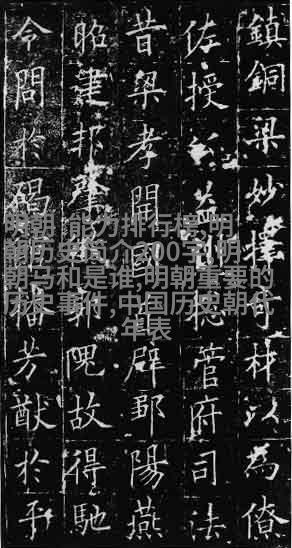 鎮銅梁妙擇奇材以為僚
佐授公益州揔管府司法
昔梁孝開國首辟鄒陽燕
昭建邦肇徵郭隗故得馳
令問於碣館播芳猷於平
明朝 能力排行榜,明
朝历史简介300字,明
朝马和是谁,明朝重要的
历史事件,中国历史朝代
年表